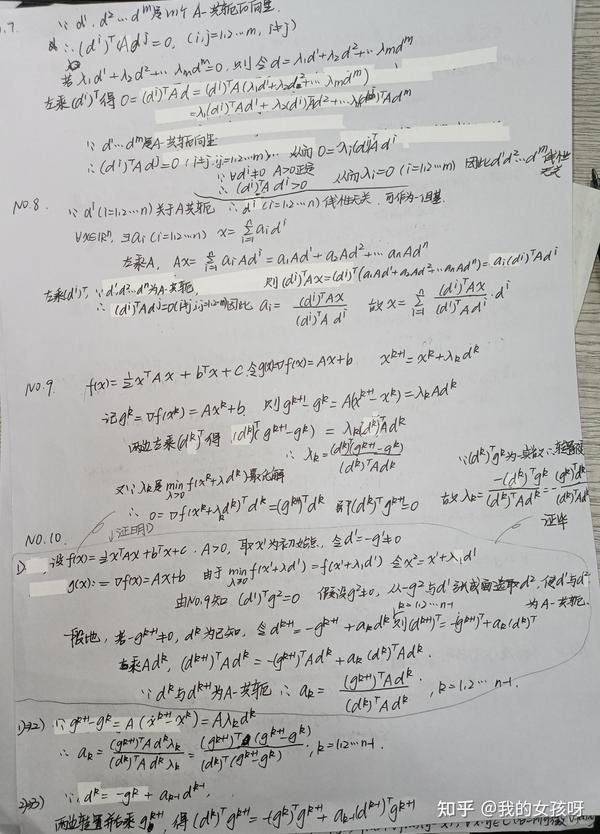 ∵ d¹, d² … dᵐ是m个A-共轭的向量.
∴ (dⁱ)ᵀAdʲ=0, (i,j=1,2…m, i≠j)
若λ₁d¹+λ₂d²+…λₘdᵐ=0, 则令d=λ₁d¹+λ₂d²+…λₘdᵐ
左乘(dⁱ)ᵀ得 0=(dⁱ)ᵀAd=(dⁱ)ᵀA(λ₁d¹+λ₂d²+…λₘdᵐ)
=λ₁(dⁱ)ᵀAd¹+λ₂(dⁱ)ᵀAd²+…λₘ(dⁱ)ᵀAdᵐ
∵ d¹…dᵐ是A-共轭的向量
∴ (dⁱ)ᵀAdʲ=0 (i≠j, i,j=1,2…m) 从而 0=λᵢ(dⁱ)ᵀAdⁱ
∵ ∀dⁱ≠0 A>0正定
∴ (dⁱ)ᵀAdⁱ>0 从而λᵢ=0 (i=1,2…m) 因此d¹d²…dᵐ线性无关
NO.8 ∵ dⁱ(i=1,2…n)关于A共轭 ∴ dⁱ(i=1,2…n)线性无关. 可作为一组基.
∀x∈Rⁿ, ∃aᵢ(i=1,2…n) x=∑ⁿᵢ₌₁ aᵢdⁱ
左乘A, Ax=∑ⁿᵢ₌₁ aᵢAdⁱ=a₁Ad¹+a₂Ad²+…aₙAdⁿ
左乘(dⁱ)ᵀ, ∵ d¹,d²…dⁿ为A-共轭, 则(dⁱ)ᵀAx=(dⁱ)ᵀ(a₁Ad¹+a₂Ad²+…aₙAdⁿ)=aᵢ(dⁱ)ᵀAdⁱ
∴ (dⁱ)ᵀAdʲ=0(i≠j, i,j=1,2…n) 因此 aᵢ=(dⁱ)ᵀAx/(dⁱ)ᵀAdⁱ 故x=∑ⁿᵢ₌₁ (dⁱ)ᵀAx/(dⁱ)ᵀAdⁱ·dⁱ
NO.9. f(x)=½xᵀAx+bᵀx+c 令g(x)=∇f(x)=Ax+b xᵏ⁺¹=xᵏ+λₖdᵏ
记gᵏ=∇f(xᵏ)=Axᵏ+b 则gᵏ⁺¹-gᵏ=A(xᵏ⁺¹-xᵏ)=λₖAdᵏ
两边左乘(dᵏ)ᵀ得 (dᵏ)ᵀ(gᵏ⁺¹-gᵏ)=λₖ(dᵏ)ᵀAdᵏ
∴ λₖ=(dᵏ)ᵀ(gᵏ⁺¹-gᵏ)/(dᵏ)ᵀAdᵏ
又∵ λₖ是min λ>0 f(xᵏ+λdᵏ)最优解 ∵ (dᵏ)ᵀgᵏ为一实数∴转置
∴ 0=∇f(xᵏ+λₖdᵏ)ᵀdᵏ=(gᵏ⁺¹)ᵀdᵏ 即(dᵏ)ᵀgᵏ⁺¹=0 故λₖ=-(dᵏ)ᵀgᵏ/(dᵏ)ᵀAdᵏ=-(gᵏ)ᵀdᵏ/(dᵏ)ᵀAdᵏ
NO.10. ↓证明① 证毕
① 设f(x)=½xᵀAx+bᵀx+c. A>0, 取x¹为初始点, 令d¹=-g¹≠0
g(x):=∇f(x)=Ax+b 由于min λ>0 f(x¹+λd¹)=f(x¹+λ₁d¹) 令x²=x¹+λ₁d¹
由NO.9知 (d¹)ᵀg²=0 假设g²≠0, 从-g²与d¹张成面选取d², 使d¹与d²为A-共轭.
k=1,2…n-1
一般地, 若-gᵏ⁺¹≠0, dᵏ为已知, 令dᵏ⁺¹=-gᵏ⁺¹+aₖdᵏ则(dᵏ⁺¹)ᵀ=-(gᵏ⁺¹)ᵀ+aₖ(dᵏ)ᵀ
右乘Adᵏ, (dᵏ⁺¹)ᵀAdᵏ=-(gᵏ⁺¹)ᵀAdᵏ+aₖ(dᵏ)ᵀAdᵏ.
∵ dᵏ与dᵏ⁺¹为A-共轭 ∴ aₖ=(gᵏ⁺¹)ᵀAdᵏ/(dᵏ)ᵀAdᵏ, k=1,2…n-1.
1)⇒2) ∵ gᵏ⁺¹-gᵏ=A(xᵏ⁺¹-xᵏ)=Aλₖdᵏ
∴ aₖ=(gᵏ⁺¹)ᵀAdᵏλₖ/(dᵏ)ᵀAdᵏλₖ=(gᵏ⁺¹)ᵀ(gᵏ⁺¹-gᵏ)/(dᵏ)ᵀ(gᵏ⁺¹-gᵏ), k=1,2…n-1.
2)⇒3) ∵ dᵏ=-gᵏ+aₖ₋₁dᵏ⁻¹,
两边转置并右乘gᵏ⁺¹, 得(dᵏ)ᵀgᵏ⁺¹=-(gᵏ)ᵀgᵏ⁺¹+aₖ₋₁(dᵏ⁻¹)ᵀgᵏ⁺¹
知乎 @我的女孩呀